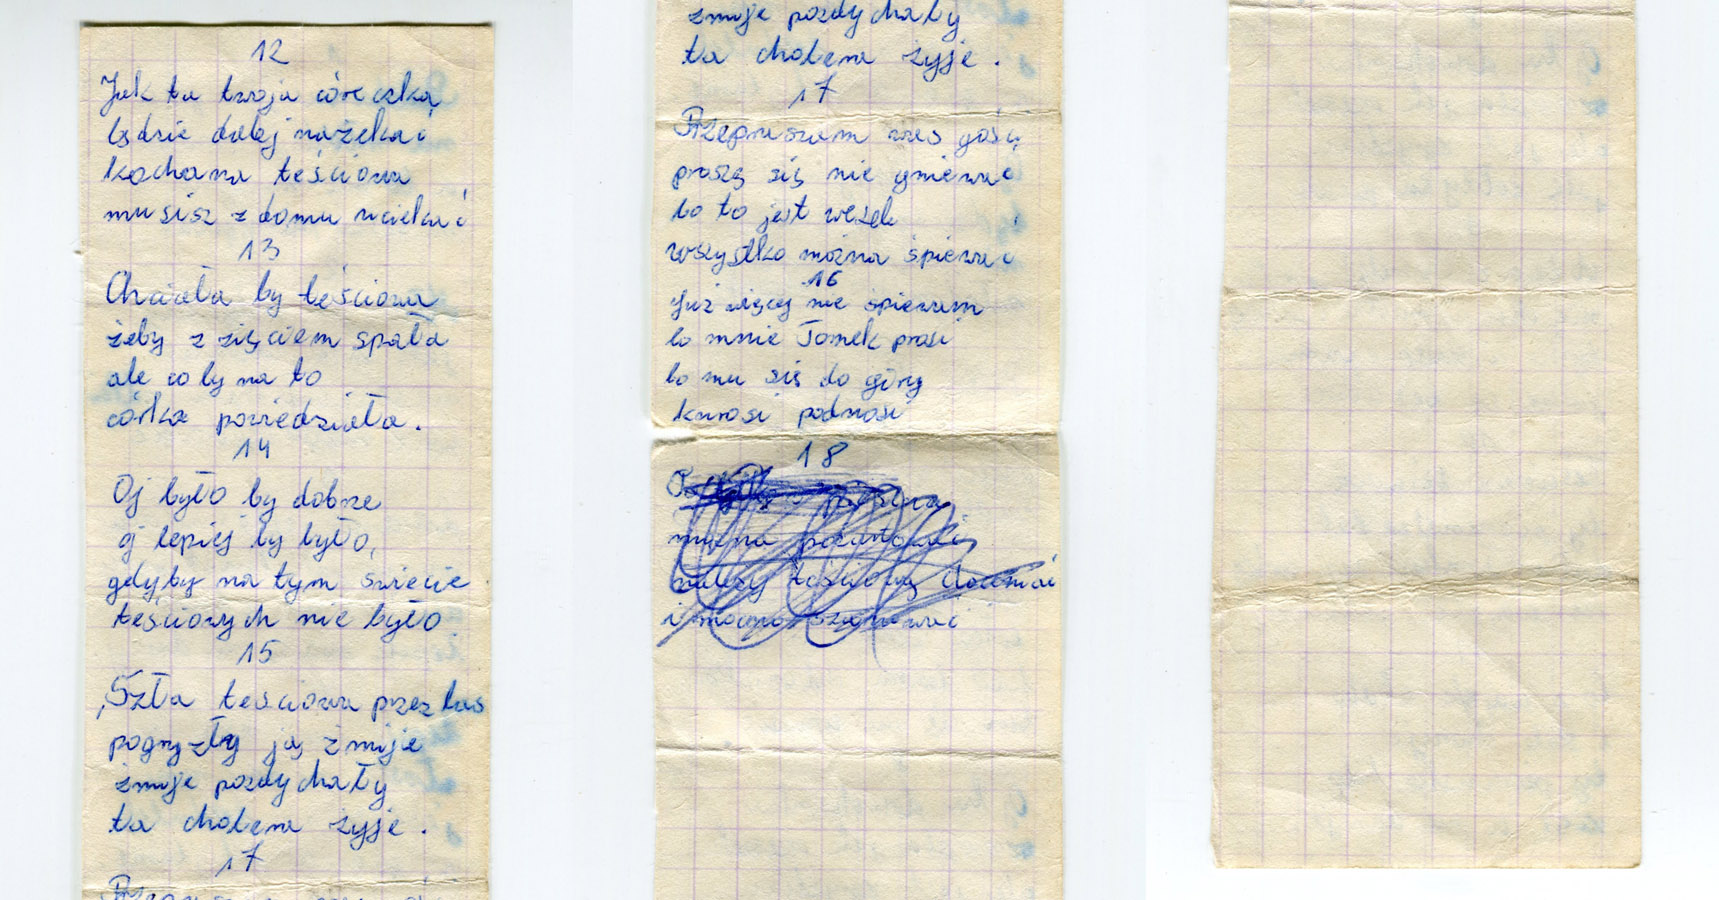 12
Jak ta twoja córeczka
będzie dalej nażekać
kochana teściowa
musisz z domu uciekać
13
Chciała by teściowa
żeby z zięciem spała
ale co by na to
córka powiedziała.
14
Oj było by dobrze
oj lepiej by było,
gdyby na tym świecie
teściowych nie było
15
Szła teściowa przez las
pogryzły ją żmije
żmije pozdychały
ta cholera żyje.
17
żmije pozdychały
ta cholera żyje.
17
Przepraszam was gości
proszę się nie gniewać
bo to jest wesele
wszystko można śpiewać
16
Już więcej nie śpiewam
bo mnie Tomek prosi
bo mu się do góry
kurosi podnosi
18
można
należy teściową doceniać
i mocno szanować